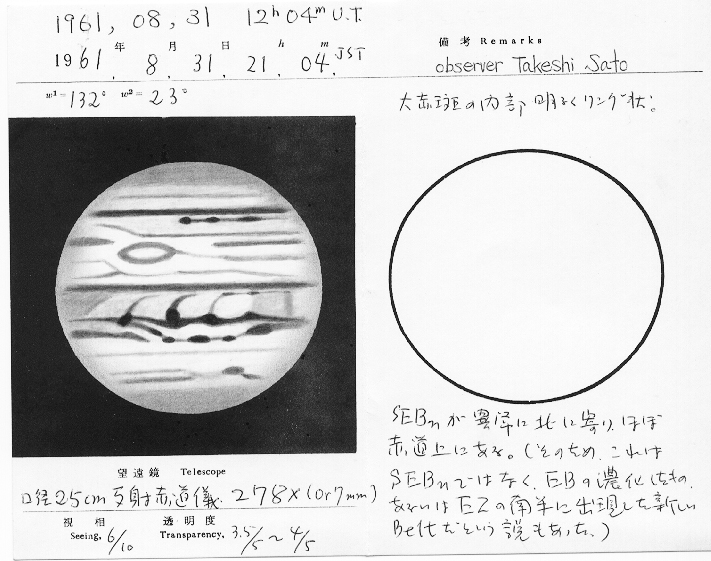 1961, 08, 31 12h 04m U.T.
1961年 8月 31日 21h 04m JST
ω1=132° ω2=23°
備考 Remarks
observer Takeshi Sato
大赤斑の内部 明るくリング状。
望遠鏡 Telescope
口径25cm反射赤道儀. 278×(Or7mm)
視相 Seeing, 6/10 透明度 Transparency, 3.5/5〜4/5
SEBnが異常に北に寄り、ほぼ
赤道上にある。(そのため、これは
SEBnではなく、EBの濃化したもの、
あるいはEZの南半に出現した新しい
Beltだという説もあった。)